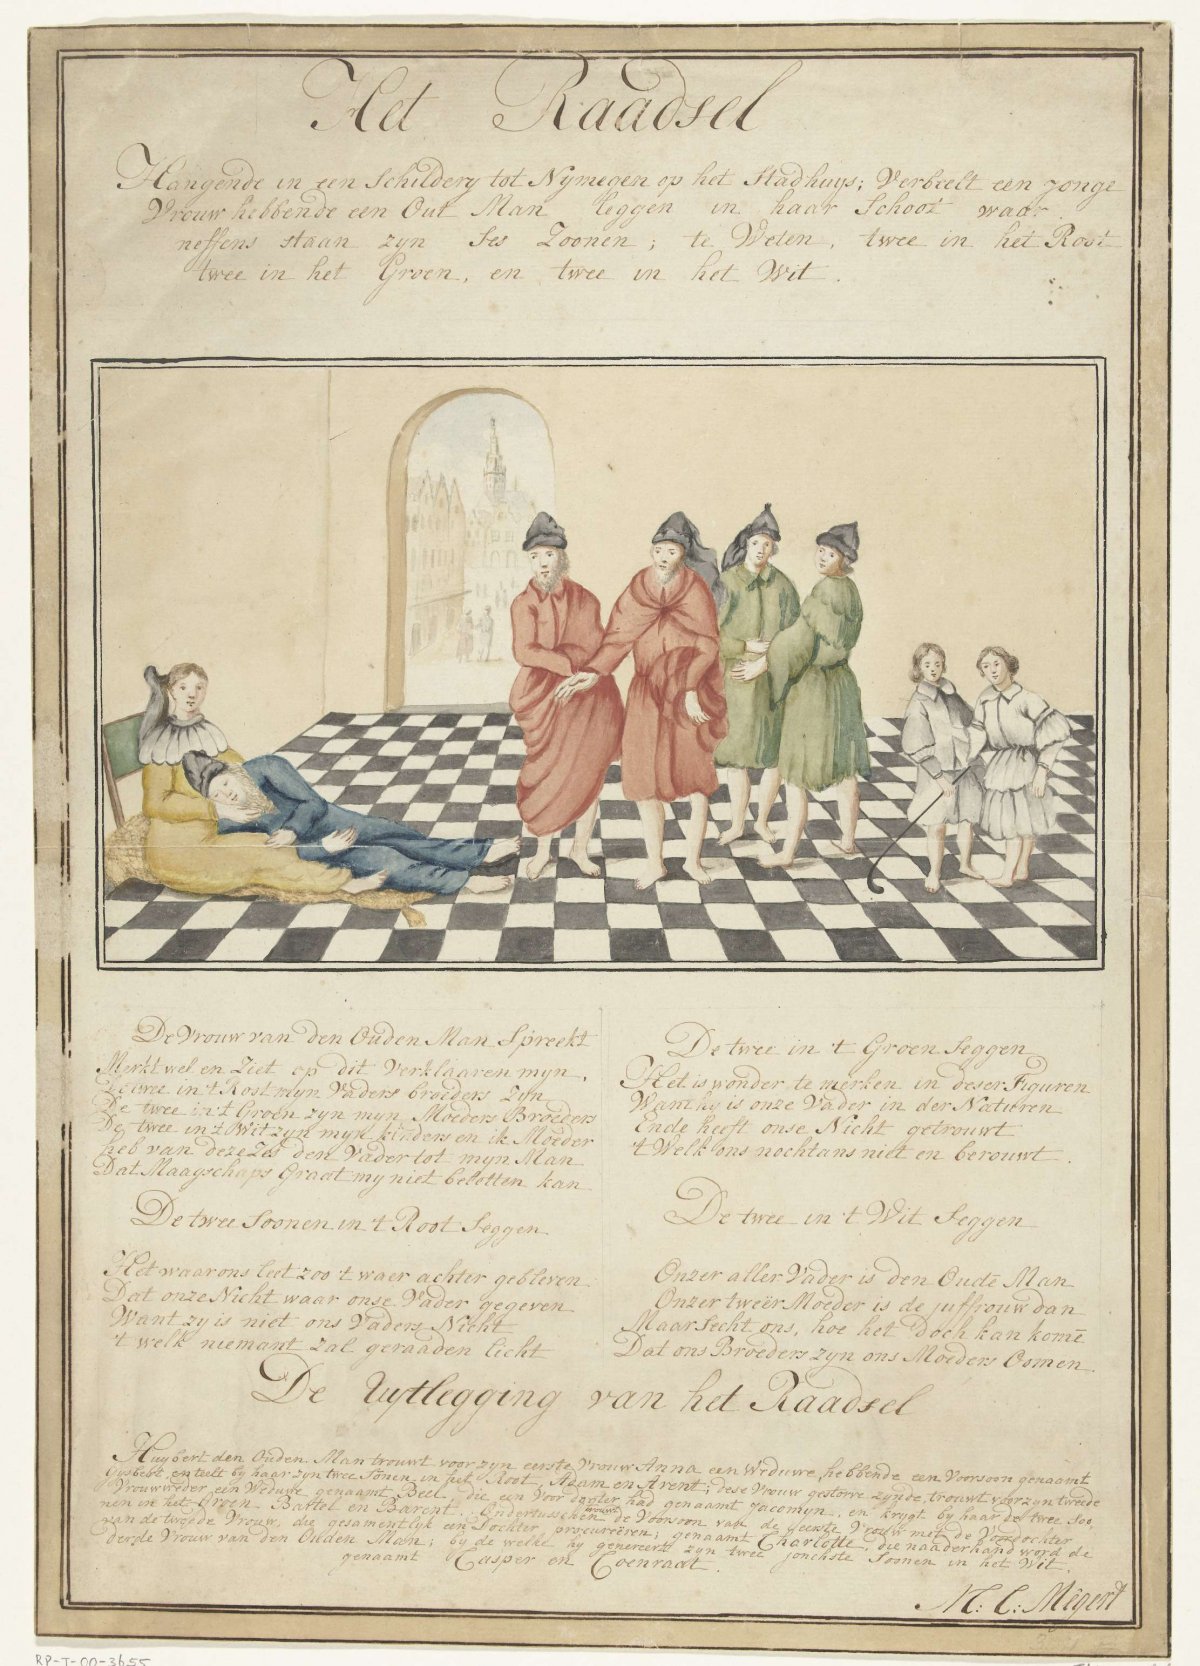 Het Raadsel
Hangende in een Schildery tot Nymegen op het Stadhuys; Verbeelt een jonge
Vrouw hebbende een Out Man leggen in haar Schoot waar
neffens staan zyn Ses Zoonen; te Weten, twee in het Root
twee in het Groen, en twee in het Wit.
De Vrouw van den Ouden Man Spreekt
Merkt wel en Ziet op dit Verklaaren myn,
De twee in 't Root myn Vaders broeders Zyn
De twee in 't Groen zyn myn Moeders Broeders
De twee in 't Wit zyn myn kinders en ik Moeder
heb van deze Zes den Vader tot myn Man
Dat Maagschaps Graat my niet beletten kan
De twee Soonen in 't Root Seggen
Het waar ons leet zoo 't waer achter gebleven
Dat onze Nicht waar onse Vader gegeven
Want zy is niet ons Vaders Nicht
't welk niemant zal geraaden licht
De twee in 't Groen Seggen
Het is wonder te merken in deser Figuren
Want hy is onze Vader in der Naturen
Ende heeft onse Nicht getrouwt
't Welk ons nochtans niet en berouwt.
De twee in 't Wit Seggen
Onzer aller Vader is den Oudē Man
Onzer tweër Moeder is de juffrouw dan
Maar Secht ons, hoe het Doch kan komē
Dat ons Broeders zyn ons Moeders Oomen.
De Uytlegging van het Raadsel
Huybert den Ouden Man trouwt voor zyn eerste Vrouw Anna een Weduwe, hebbende een Voorsoon genaamt
Gysbert, en teelt by haar zyn twee Sonen in het Root, Adam en Arent; dese Vrouw gestorve zynde, trouwt voor zyn tweede
Vrouw weder een Weduwe genaamt Beel, die een Voor dogter had genaamt Jacomyn, en krygt by haar de twee Soo
nen in het Groen Battel en Barent. Ondertusschen trouwt de Voorsoon van de eerste Vrouw met de Voordochter
van de tweede Vrouw, die gesamentlyk een Dochter procureëren, genaamt Charlotte, die naaderhand word de
derde Vrouw van den Ouden Man; by de welke hy genereert zyn twee jonchste Soonen in het Wit,
genaamt Casper en Coenraat.
RP-T-00-3655